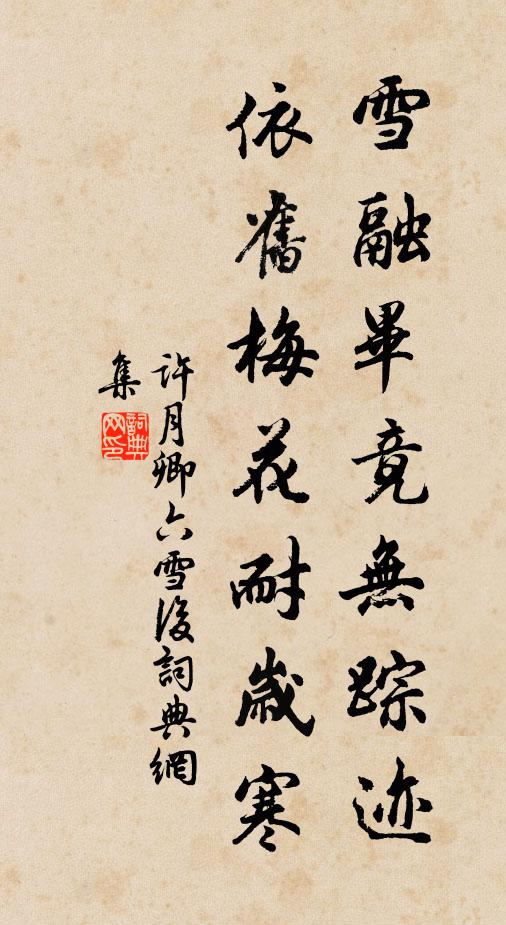 雪融畢竟無踪迹
依舊梅花耐歲寒
許月卿六雪後詞典網
集
詞典網印